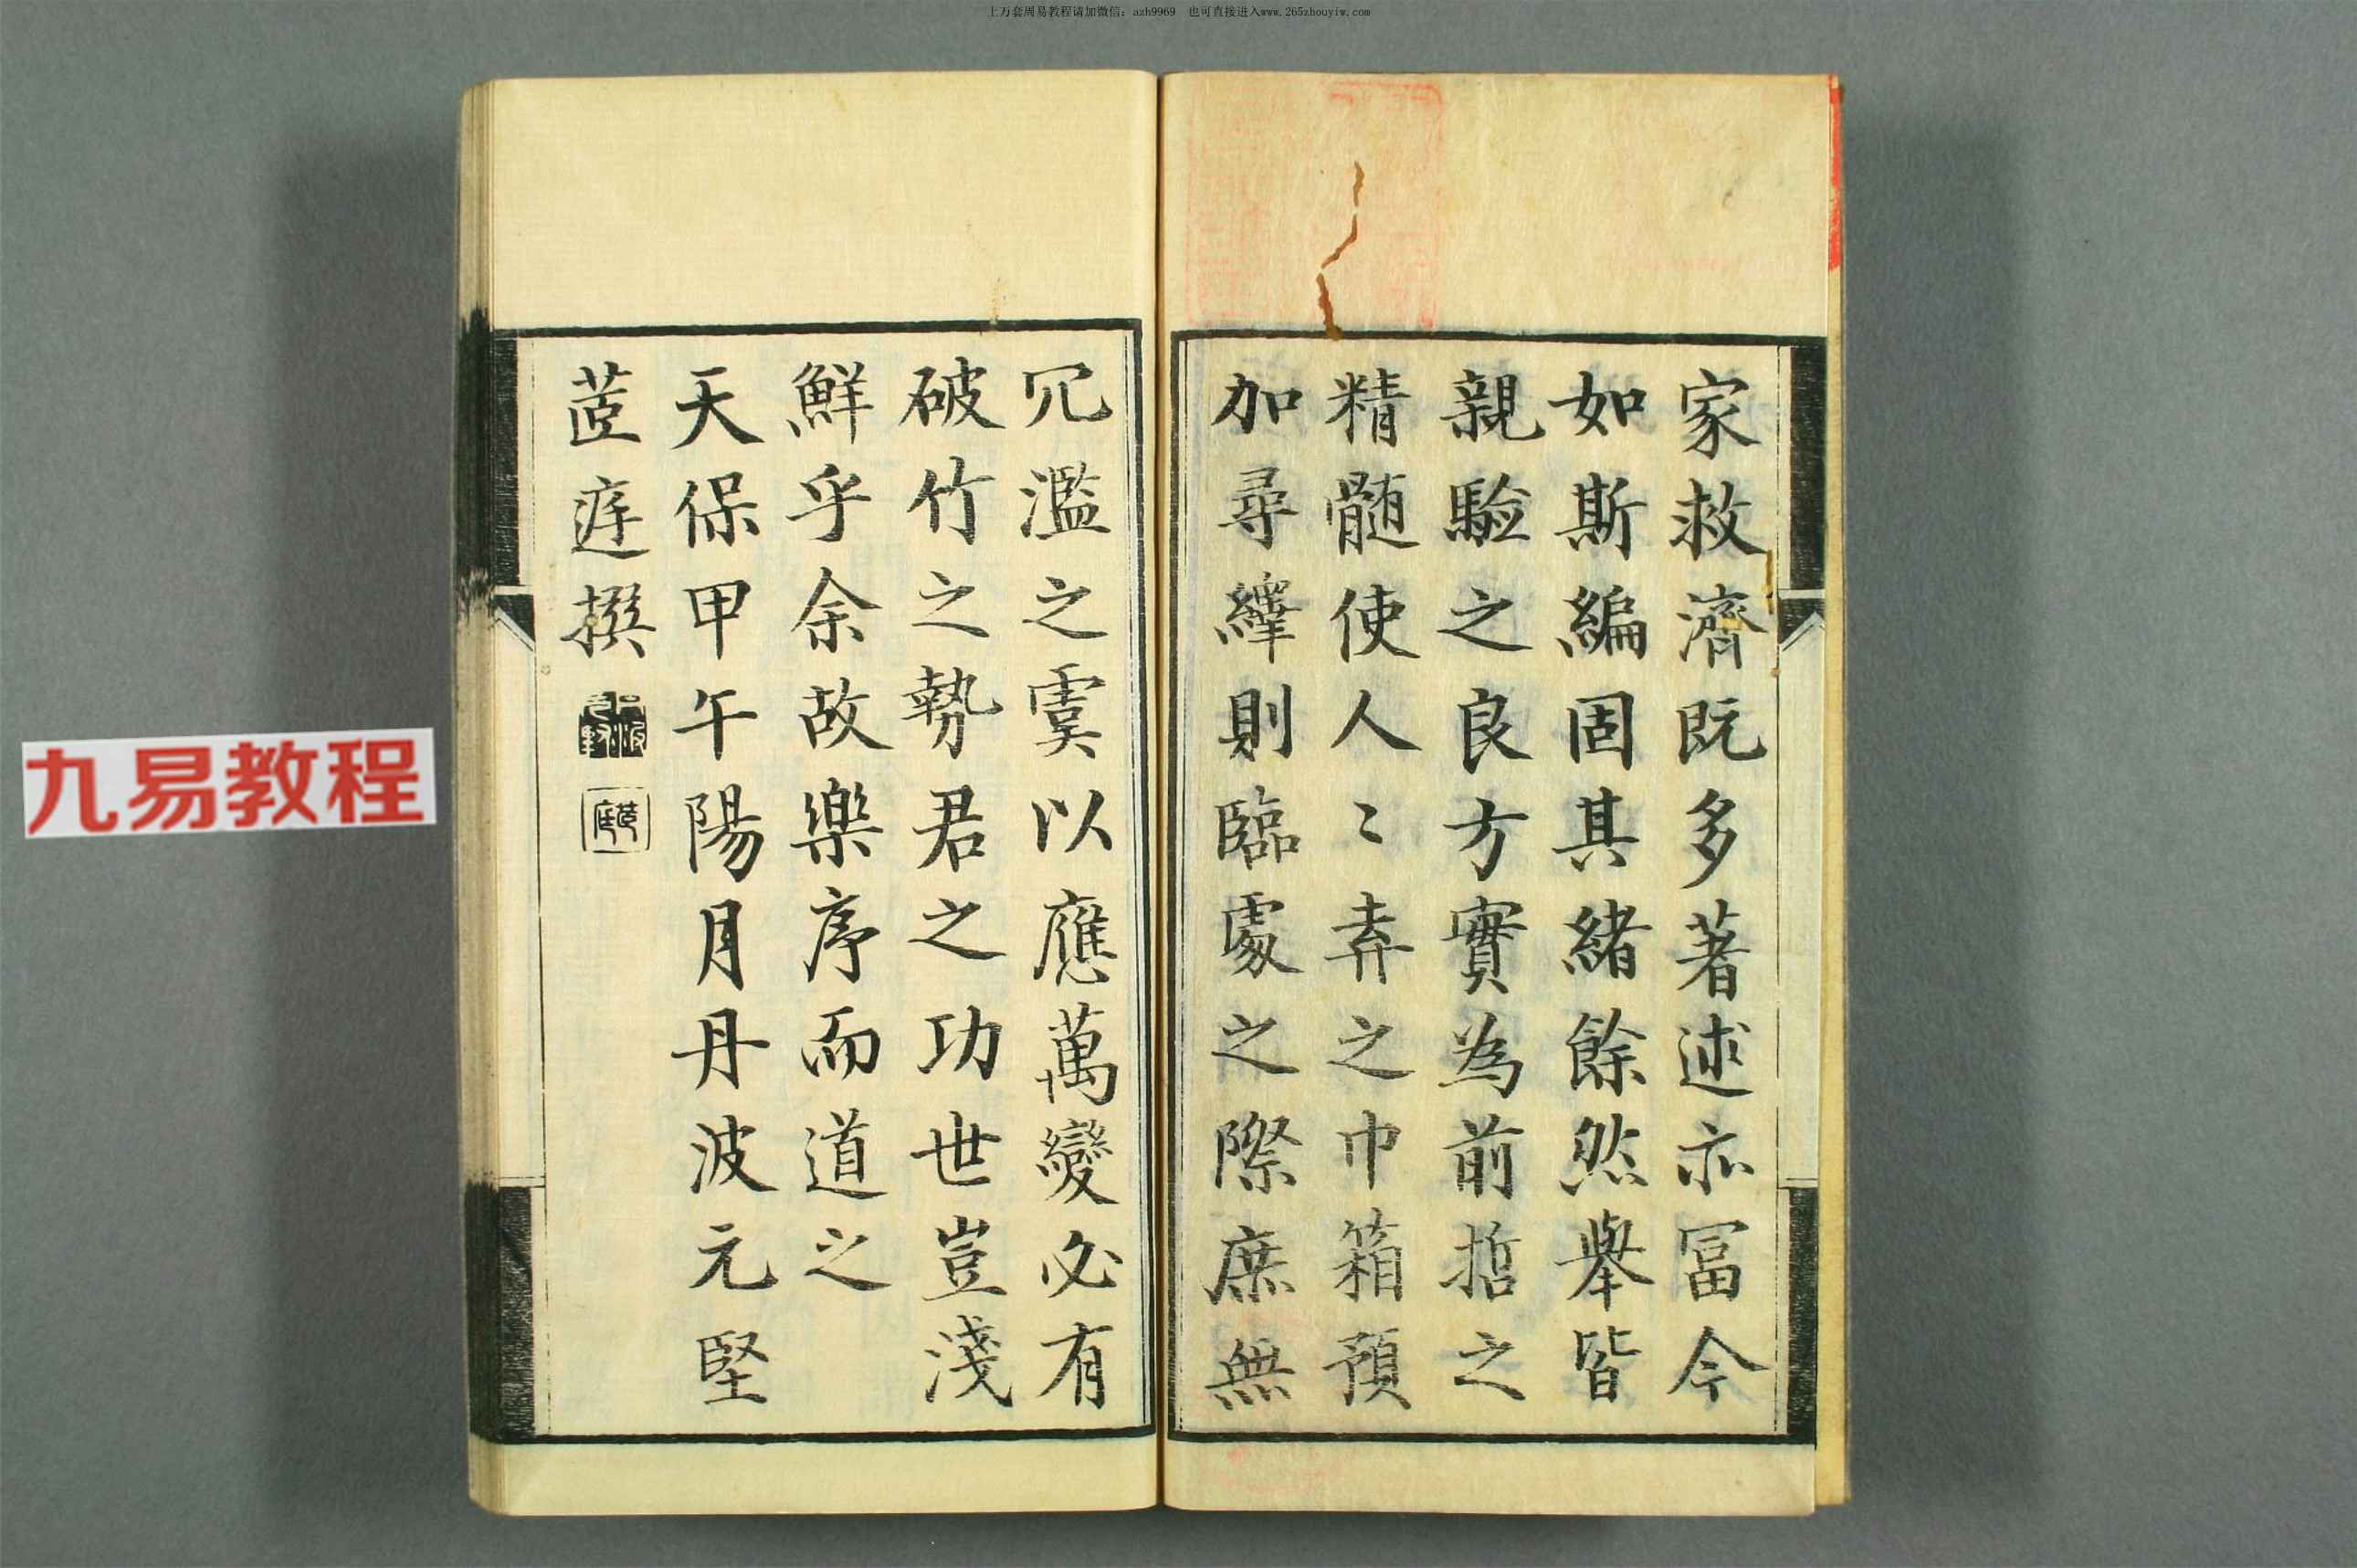 上万套周易教程请加微信：azh9969　也可直接进入www.265zhouyiw.com
家救濟既多著述亦冨今
如斯編固其緒餘然舉皆
親驗之良方實為前哲之
精髄使人〻弆之巾箱預
加尋繹則臨處之際庶無
冗濫之虞以應萬變必有
破竹之勢君之功世豈淺
鮮乎余故樂序而道之
天保甲午陽月丹波元堅
茝庭撰
九易教程